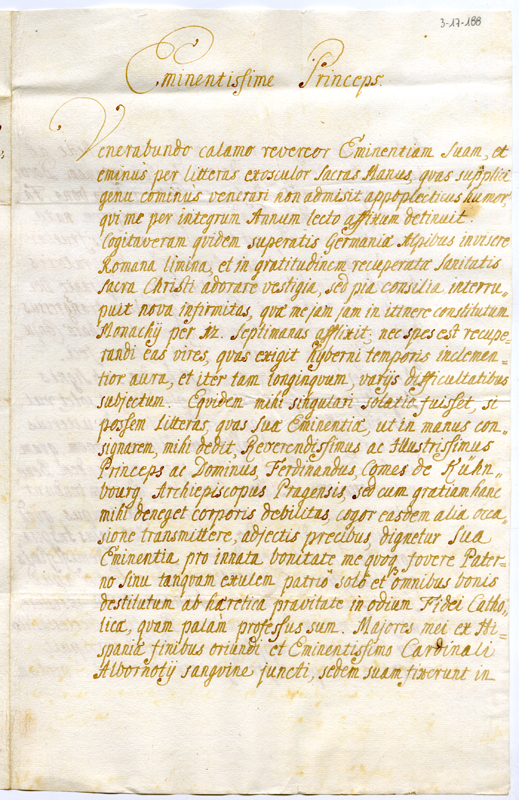 3-17-188
Eminentissime Princeps.
Venerabundo calamo revereor Eminentiam Suam, et
eminus per litteras exosculor Sacras Manus, quas supplici
genu cominus venerari non admisit appoplecticus humor,
qvi me per integrum Annum lecto affixum detinuit.
Cogitaveram qvidem superatis Germaniæ Alpibus invisere
Romana limina, et in gratitudinem recuperatæ Sanitatis
sacra Christi adorare vestigia, sed pia consilia interru„
puit nova infirmitas, qvæ me jam jam in itinere constitutum
Monachij per septimanas afflixit; nec spes est recupe„
randi eas vires, qvas exigit hyberni temporis inclemen„
tior aura, et iter tam longinqvum, varijs difficultatibus
subjectum. Eqvidem mihi singulari solatio fuisset, si
possem litteras, qvas Suæ Eminentiæ, ut in manus con„
signarem, mihi dedit, Reverendissimus ac Illustrissimus
Princeps ac Dominus, Ferdinandus, Comes de Kühn„
bourg, Archiepiscopus Pragensis, sed cum gratiam hanc
mihi deneget corporis debilitas, cogor easdem alia occa„
sione transmittere, adjectis precibus, dignetur Sua
Eminentia pro innata bonitate me qvoq fovere Pater„
no Sinu tanqvam exulem patrio solo et omnibus bonis
destitutum ab hæretica pravitate in odium Fidei Catho„
licæ, qvam palam professus sum. Majores mei ex Hi„
spaniæ finibus oriundi et Eminentissimo Cardinali
Albornotij sangvine juncti, sedem suam fixerunt in